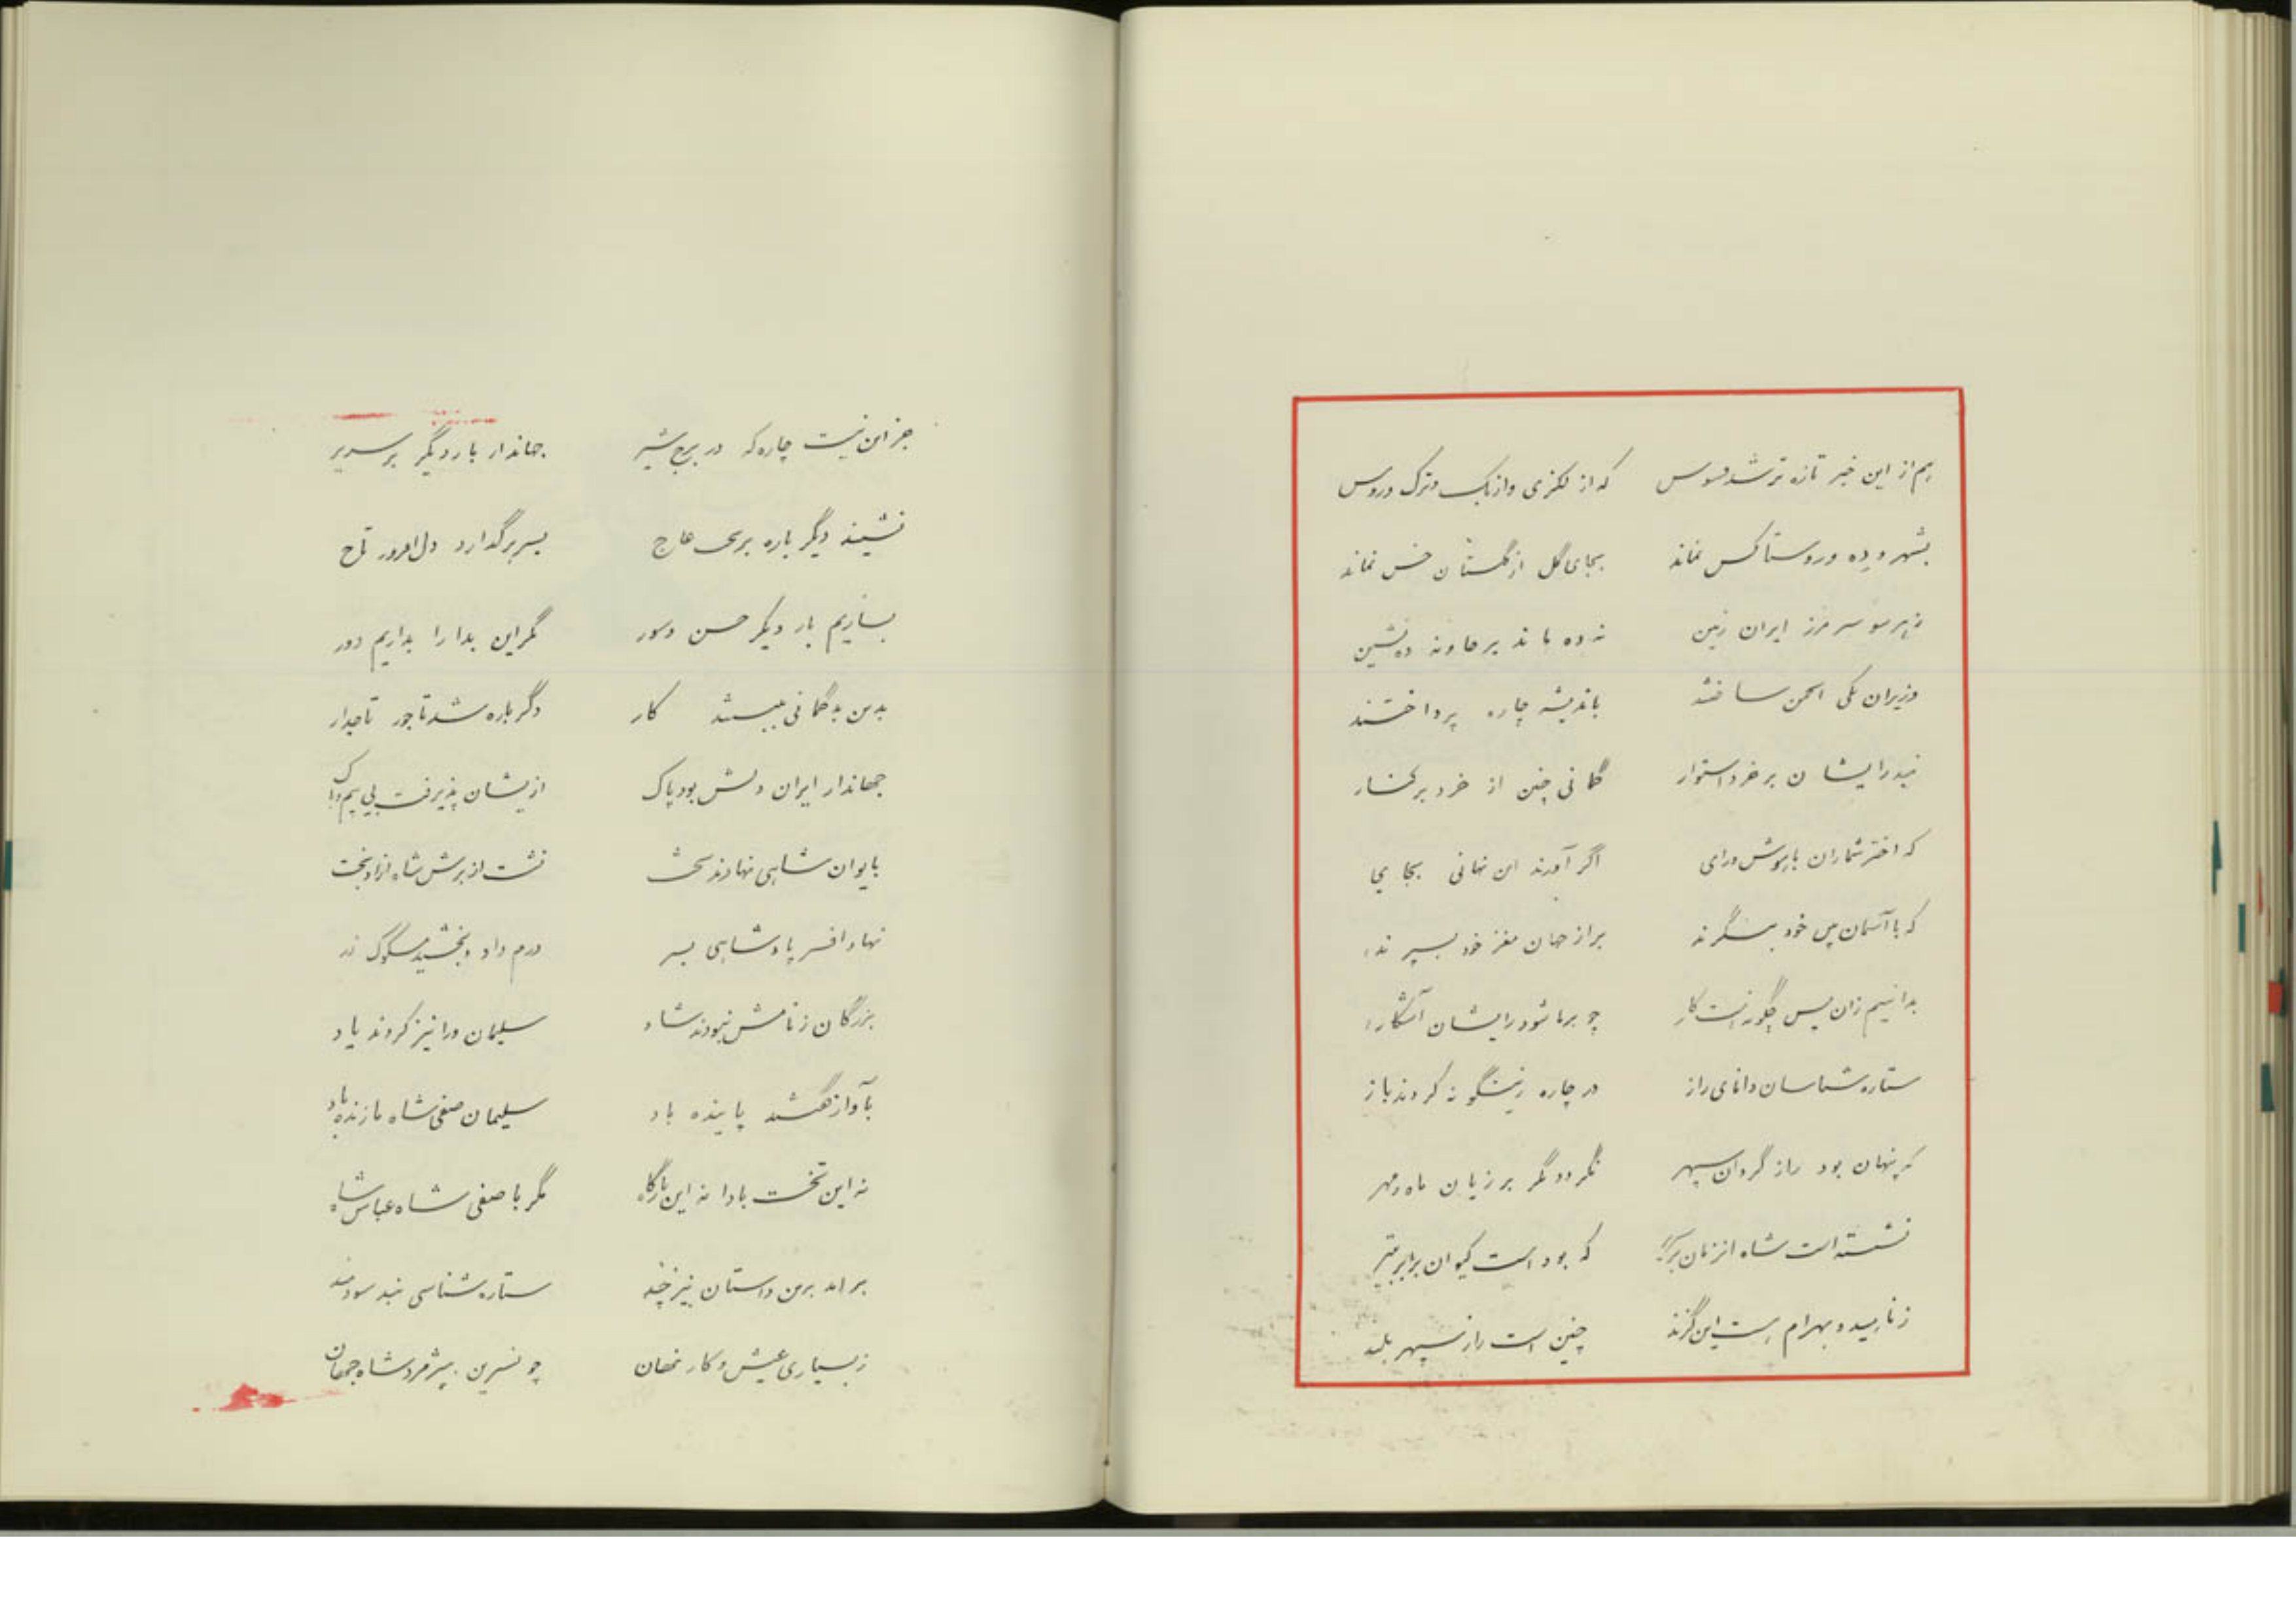 هم از این خبر تازه تر شد فسوس که از لکزی و ازبک و ترک و روس
بشهر و ده و روستا کس نماند بجای گل از گلستان خس نماند
ز هر سو سر مرز ایران زمین نه ده ماند بر جا و نه ده نشین
وزیران یکی انجمن ساختند باندیشه چاره پرداختند
نبد رایشان بر خرد استوار گمانی چنین از خرد بر کنار
که اختر شماران با هوش و رای اگر آورند این نهانی بجای
که با آسمان پس خود بنگرند براز جهان مغز خود بسپرند
بدانیم زان پس چگونه است کار چو بر ما شود رایشان آشکار
ستاره شناسان دانای راز در چاره زینگونه کردند باز
که پنهان بود راز گردان سپهر نگردد مگر بر زیان ماه و مهر
نشسته است شاه از زمان که بود است کیوان برابر
ز ناهید و بهرام است این گزند چنین است راز سپهر بلند
جز این نیست چاره که در برج شیر جهاندار بار دیگر بر سریر
نشیند دیگر باره بر تخت عاج بسر بر گذارد دل افروز تاج
بسازیم بار دیگر جشن و سور مگر این بدا را بداریم دور
بدین بدگمانی ببستند کار دگر باره شد تاجور تاجدار
جهاندار ایران دلش بود پاک ازیشان پذیرفت بی بیم و باک
بایوان شاهی نهادند تخت نشست از برش شاه آزاد بخت
نهاد افسر پادشاهی بسر درم داد و بخشید مسکوک زر
بزرگان ز نامش نبودند شاد سلیمان ورا نیز کردند یاد
بآواز گفتند پاینده باد سلیمان صفی شاه ما زنده باد
نه این تخت بادا نه این بارگاه مگر با صفی شاه عباس شاه
بر آمد برین داستان نیز چند ستاره شناسی نبد سودمند
ز بسیاری عیش و کار نهان چو نسرین بپژمرد شاه جهان